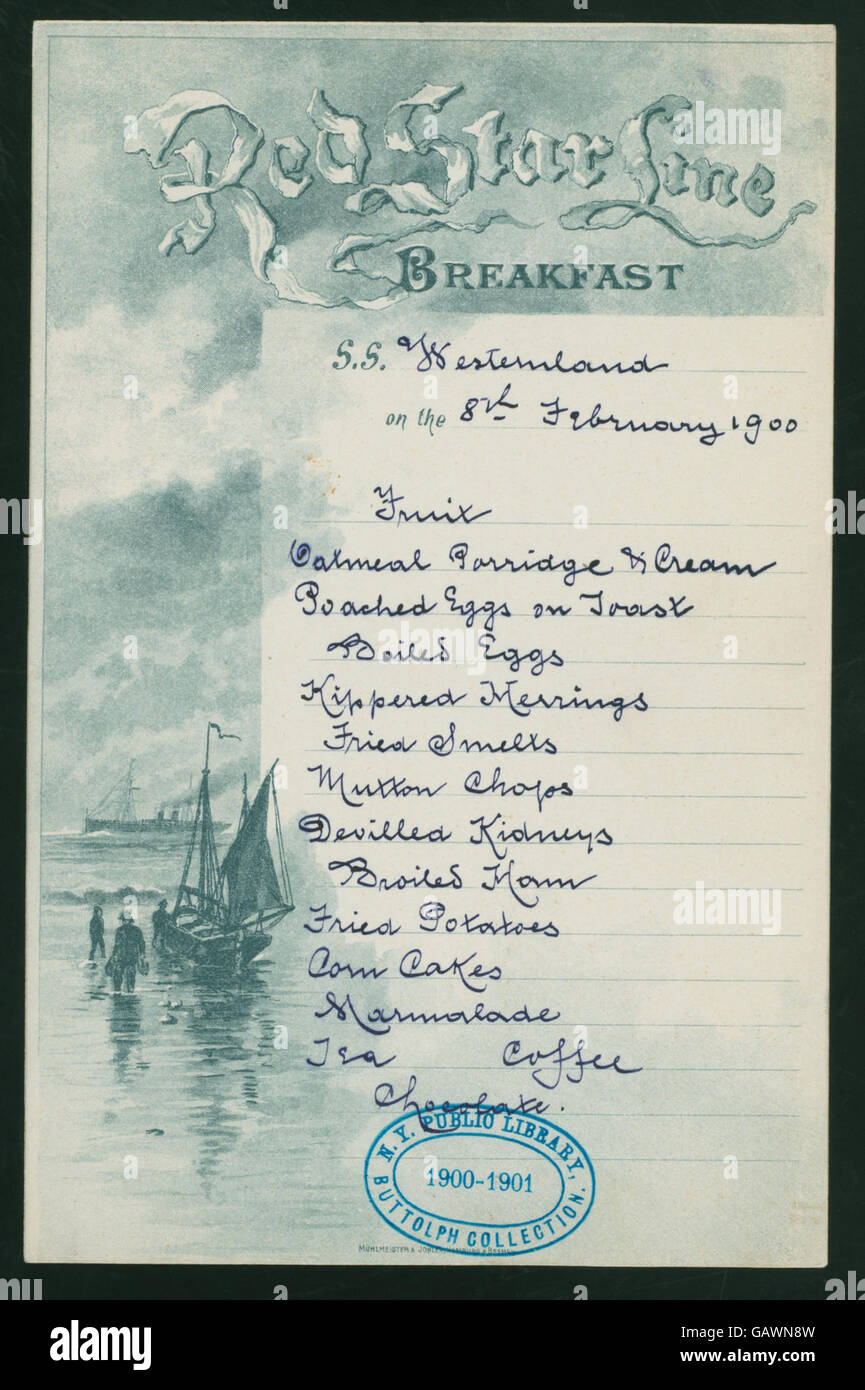 Red Star Line
BREAKFAST
S.S. Westernland
on the 8th February 1900
Fruit
Oatmeal Porridge & Cream
Poached Eggs on Toast
Boiled Eggs
Kippered Herrings
Fried Smelts
Mutton Chops
Devilled Kidneys
Broiled Ham
Fried Potatoes
Corn Cakes
Marmalade
Tea Coffee
Chocolate.
N.Y. PUBLIC LIBRARY,
1900-1901
BUTTOLPH COLLECTION.
MÜHLMEISTER & JOHLER, HAMBURG & BREMEN
alamy
Image ID: GAWN8W
www.alamy.com